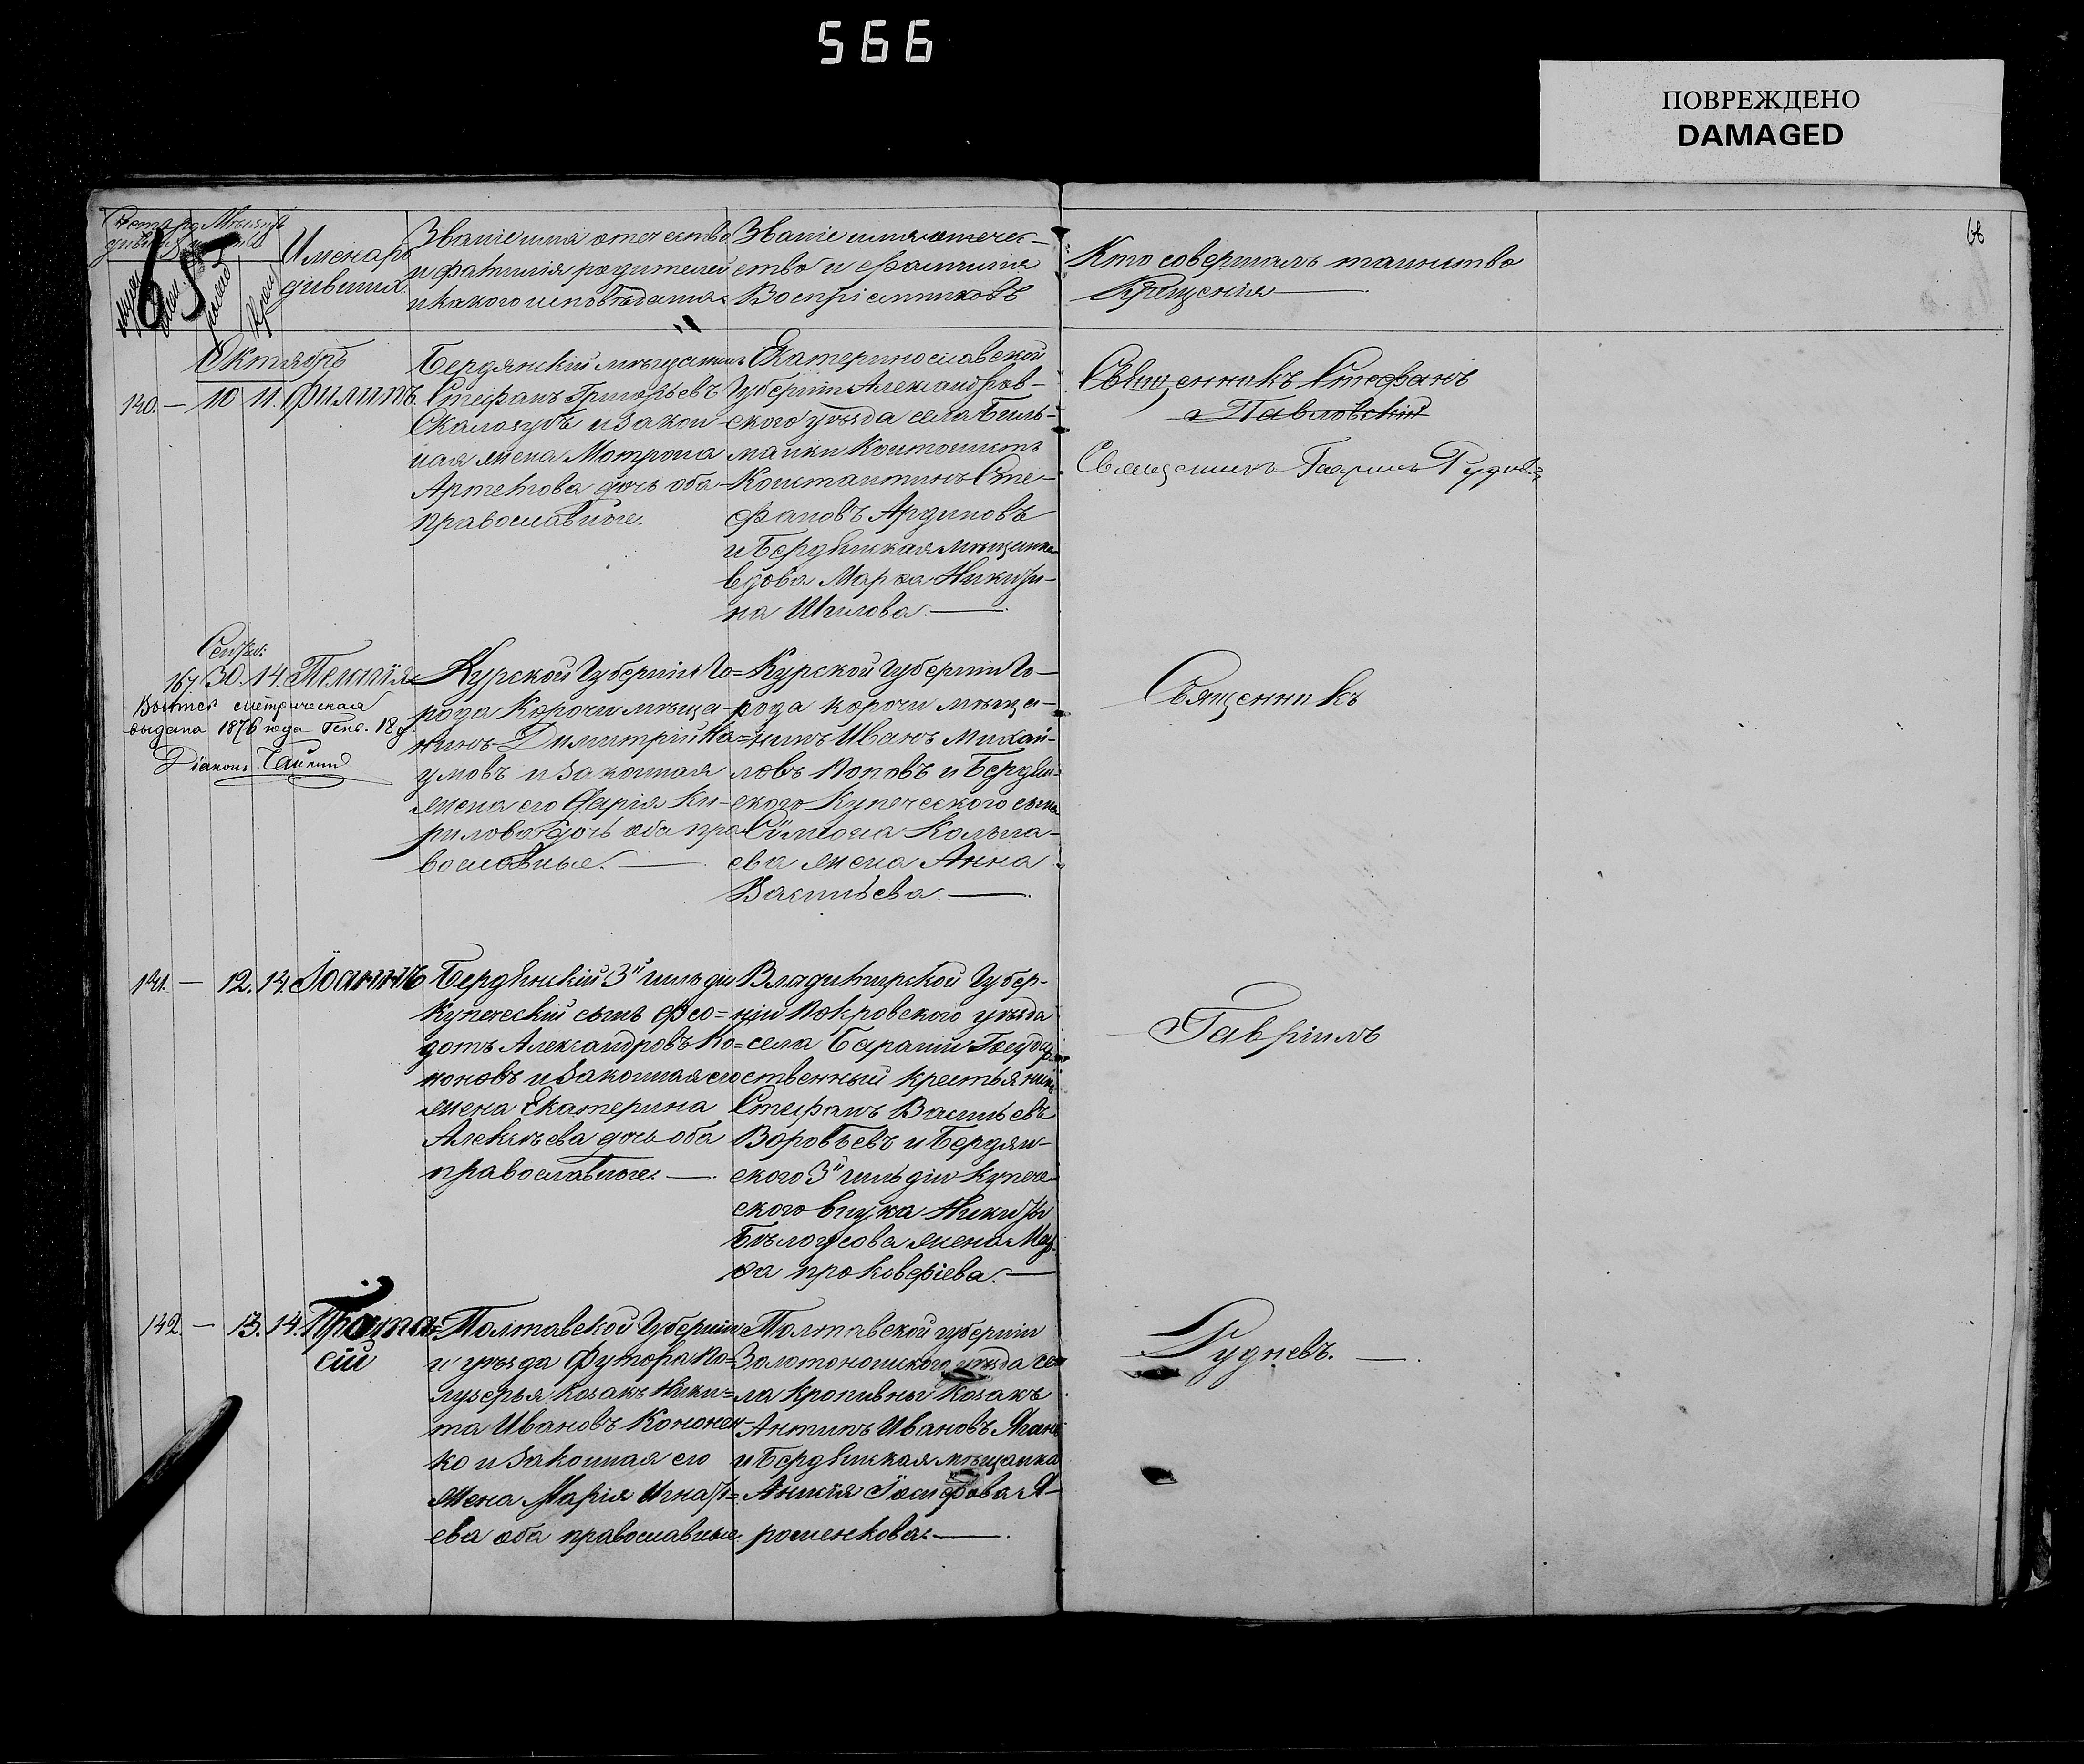 566
ПОВРЕЖДЕНО
DAMAGED
65
66
Имена ро
дившихъ
Званіе имя отечество
и фамилія родителей
и какого исповѣданія
Званіе имя отечес-
тво и фамилія
Воспріемниковъ
Кто совершалъ таинство
Крещенія
Октябрь
140. — 10 11. Филиппъ.
Бердянскій мѣщанинъ
Стефанъ Григорьевъ
Скалозубъ и закон-
ная жена Матрона
Артемова дочь оба
православные.
Екатеринославской
Губерніи Александров-
ского уѣзда села Биль-
манки
Константинъ Сте-
фановъ Ардиновъ
и Бердянская мѣщанка
вдова Марѳа Никити-
на Шилова.
Священникъ Стефанъ
Павловскій
Священникъ Гавріилъ Рудневъ
Сентяб:
167. 30. 14. Пелагія
Выпись метрическая
выдана 1876 года Генв. 18 д.
Діаконъ
Курской Губерніи Го=
рода Корочи мѣща-
нинъ Димитрій На=
умовъ и законная
жена его Дарія Ки-
рилова дочь оба пра
вославные.
Курской Губерніи Го-
рода Корочи мѣща-
нинъ Иванъ Михай-
ловъ Поповъ и Бердян-
ского Купеческого сына
Симеона Кольца-
ева жена Анна
Васильева.
Священникъ
141. — 12. 14. Іоаннъ
Бердянскій 3й гильдіи
Купеческій сынъ Фео=
дотъ Александровъ Ко=
ноновъ и законная его
жена Екатерина
Алексѣева дочь оба
православные.
Владимірской Губер-
ніи Покровского уѣзда
села
ственный крестьянинъ
Стефанъ Васильевъ
Воробьевъ и Бердян-
ского 3й гильдіи Купече-
ского внука Никиты
Бѣлоусова жена Мар-
ѳа Проковеріева.
Гавріилъ
142. — 13. 14. Прота=
сій
Полтавской Губерніи
и уѣзда Футора По=
лузерья козакъ Ники=
та Ивановъ Кононен-
ко и законная его
жена Марія Игнать=
ева оба православные
Полтавской губерніи
Золотоношского уѣзда се
ла Кропивны Козакъ
Антипъ Ивановъ
и Бердянская мѣщанка
Анисія Іосифова Я-
рошенкова.
Рудневъ.